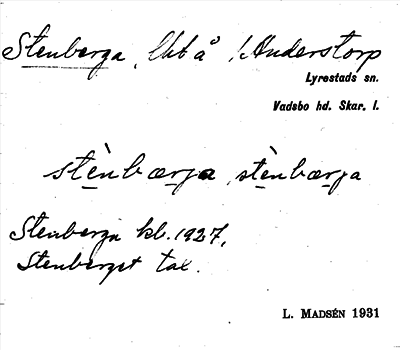 Stenberga, lht å 1 Anderstorp
Lyrestads sn.
Vadsbo hd. Skar. l.
stènbærja, stènbærja
Stenberga kb. 1927,
Stenberget tax.
L. MADSÉN 1931